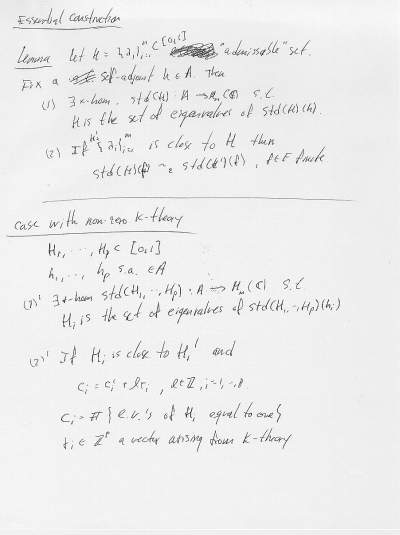 Essential Construction
Lemma Let H = {λi}ⁿi=1 ⊂ [0,1] "admissable" set.
Fix a self-adjoint h ∈ A. Then
(1) ∃ *-hom. std(H) : A → Mn(C) s.t
H is the set of eigenvalues of std(H)(h).
(2) If H' = {λi}ⁿi=1 is close to H then
std(H)(f) ~ε std(H')(f), f ∈ F finite
Case with non-zero K-theory
H1, ..., Hp ⊂ [0,1]
h1, ..., hp s.a. ∈ A
(1)' ∃ *-hom std(H1, .., Hp) : A → Mn(C) s.t
Hi is the set of eigenvalues of std(H1, .., Hp)(hi)
(2)' If Hi is close to Hi' and
ci = ci' + l ri, l ∈ Z, i=1, .., p
ci = # {e.v.'s of Hi equal to one}
ri ∈ Zᵖ a vector arising from K-theory